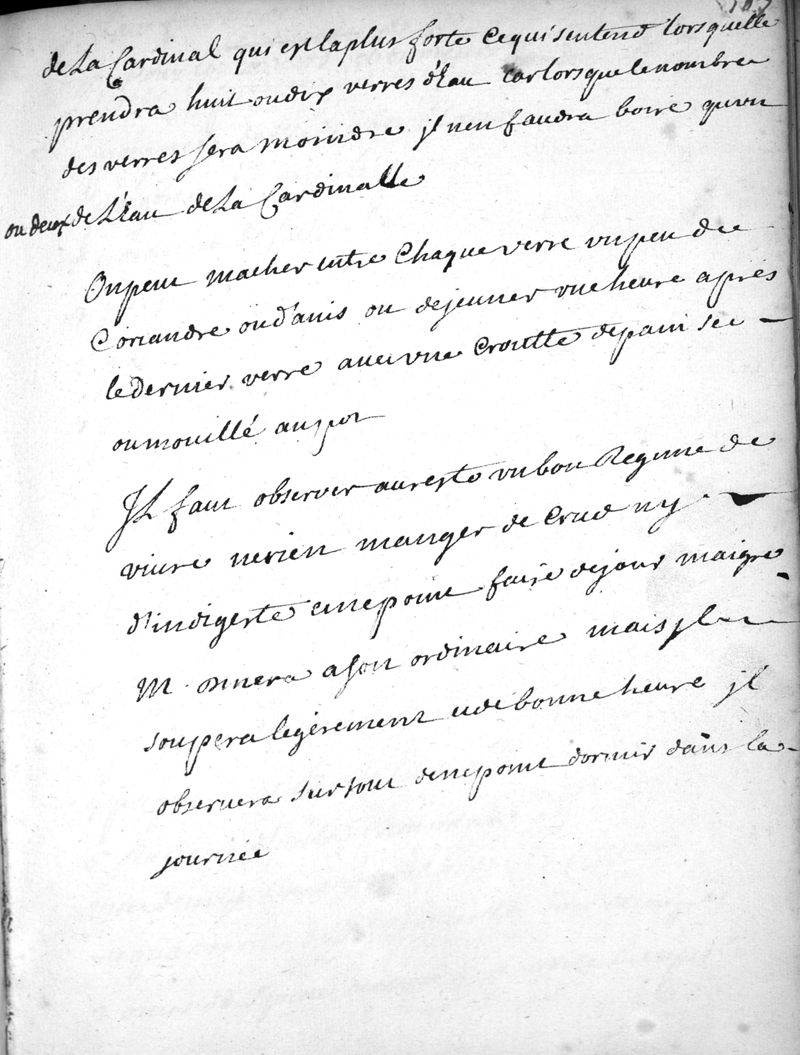 de La Cardinal qui est la plus forte ce qui sentend lors quelle
prendra huit ou dix verres d'Eau car lors que le nombre
des verres sera moindre jl nen faudra boire qu'un
ou deux de L'Eau de La Cardinalle
On peut macher entre Chaque verre un peu de
Coriandre ou d'anis ou dejeuner une heure après
le dernier verre avec une croutte de pain sec
ou mouillé au pot
Jl faut observer au reste un bon Regime de
vivre ne rien manger de crud ny
d'indigeste et ne point faire de jours maigre
M. dinera a son ordinaire mais jl
soupera legérement et de bonne heure jl
observera sur tout de ne point dormir dans la
journée